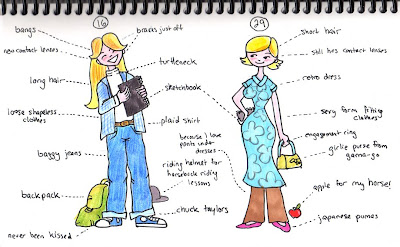 16
29
bangs
braces just off
short hair
new contact lenses
still has contact lenses
turtleneck
long hair
retro dress
sketchbook
loose shapeless
clothes
plaid shirt
sexy form fitting
clothes
because I love
pants under
dresses
engagement ring
baggy jeans
girlie purse from
gama-go
riding helmet for
horseback riding
lessons
backpack
apple for my horse!
chuck taylors
never been kissed
japanese pumas